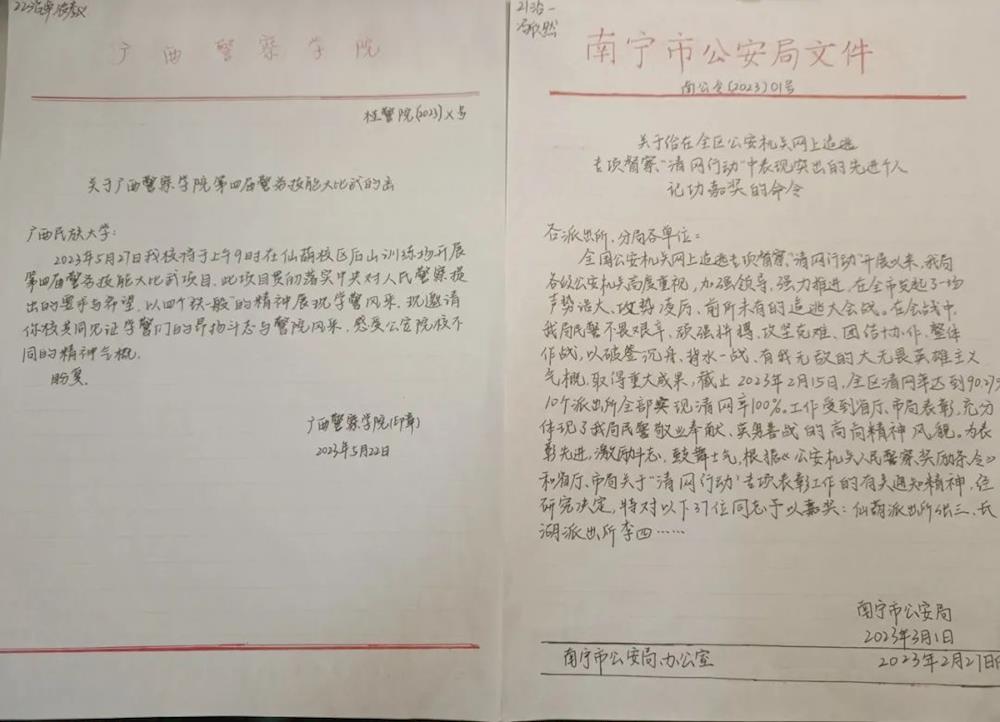 广西警察学院
桂警院(2023)X号
关于广西警察学院第四届警务技能大比武的函
广西民族大学：
2023年5月27日我校将于上午9时在仙葫校区后山训练场开展
第四届警务技能大比武项目，此项目贯彻落实中央对人民警察提
出的要求与希望，以四个铁一般的精神展现学警风采，现邀请
你校共同见证学警们的昂扬斗志与警院风采，感受公安院校不
同的精神气概。
盼复。
广西警察学院(印章)
2023年5月22日
21治一
南宁市公安局文件
南公令(2023)01号
关于给在全区公安机关网上追逃
专项督察“清网行动”中表现突出的先进个人
记功嘉奖的命令
各派出所、分局各单位：
全国公安机关网上追逃专项督察“清网行动”开展以来，我局
各级公安机关高度重视，加强领导，强力推进，在全市发起了一场
声势浩大、攻势凌厉、前所未有的追逃大会战。在会战中，
我局民警不畏艰辛，顽强拼搏，攻坚克难、团结协作、整体
作战，以破釜沉舟、背水一战、有我无敌的大无畏英雄主义
气概，取得重大成果，截止2023年2月15日，全区清网率达到90.2%
10个派出所全部实现清网率100%。工作受到省厅、市局表彰，充分
体现了我局民警敬业奉献、英勇善战的高尚精神风貌。为表
彰先进，激励斗志，鼓舞士气，根据《公安机关人民警察奖励条令》
和省厅、市局关于“清网行动”专项表彰工作的有关通知精神，经
研究决定，特对以下37位同志予以嘉奖：仙葫派出所张三、长
湖派出所李四……
南宁市公安局
2023年3月1日
南宁市公安局办公室 2023年2月27日